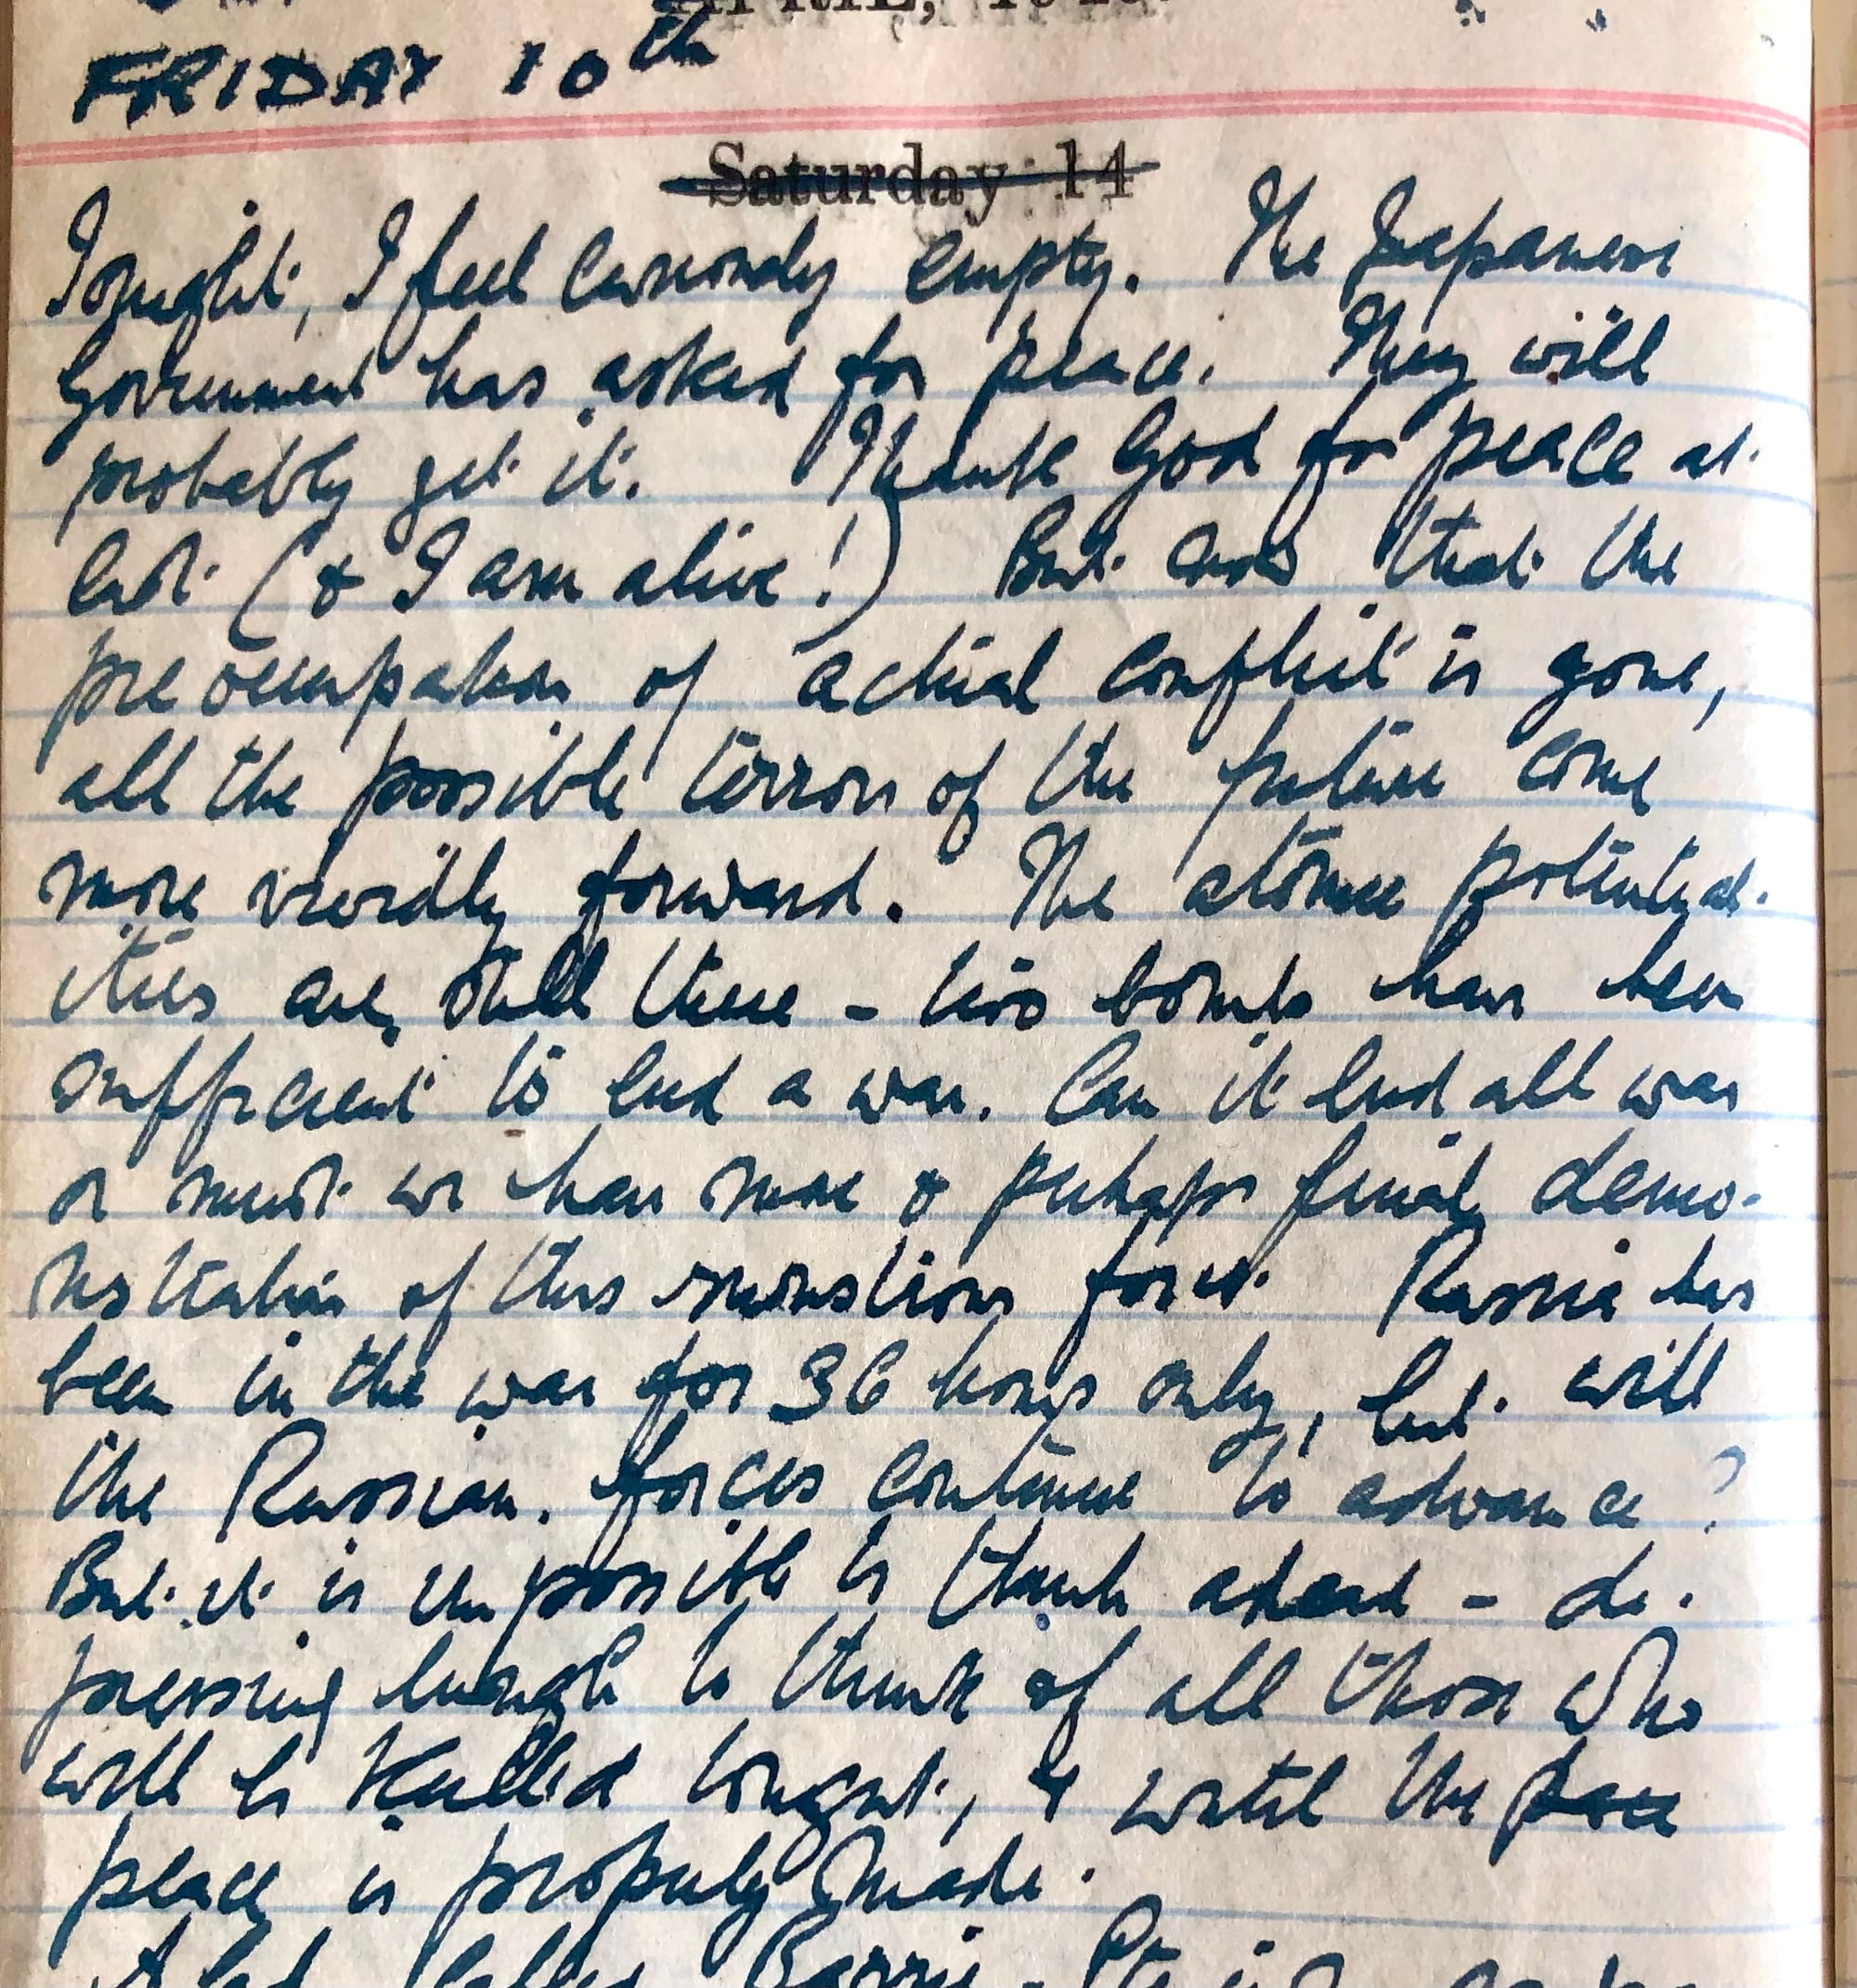 FRIDAY 10th
Saturday 14
Tonight, I feel curiously empty. The Japanese
Government has asked for peace. They will
probably get it. Thank God for peace at
last (& I am alive!) But now that the
preoccupation of actual conflict is gone,
all the possible terrors of the future come
more vividly forward. The atomic potential-
ities are still there - two bombs have been
sufficient to end a war. Can it end all war
or must we have more & perhaps final demo-
nstration of this monstrous force. Russia has
been in the war for 36 hours only, but will
the Russian forces continue to advance?
But it is impossible to think ahead - de-
pressing enough to think of all those who
will be killed tonight, & until the
peace is properly made.
A lad called Barrie -